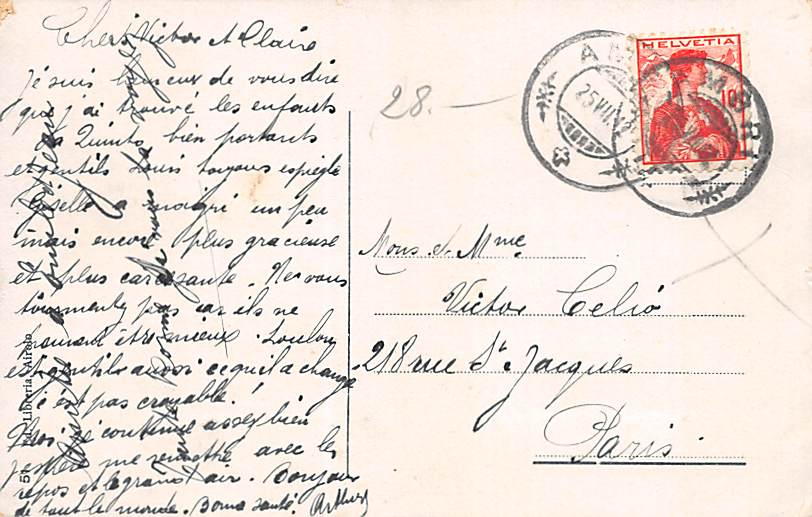 Chers Victor et Claire
Je suis heureux de vous dire
que j'ai trouvé les enfants
à Quinto bien portants
et gentils Louis toujours espiègle
Gisella a maigri un peu
mais encore plus gracieuse
et plus caressante. Ne vous
tourmentez pas car ils ne
peuvent être mieux. Loulou
est gentille aussi ce qu'il a changé
c'est pas croyable!
Moi je continue assez bien
j'espère me remettre avec les
repos et le grand air. Bonjour
de tout le monde. Bonne santé! Arthur
28.-
HELVETIA
10
25 VII
Mons. et Mme
Victor Celio
218 rue St Jacques
Paris
Libreria Airolo